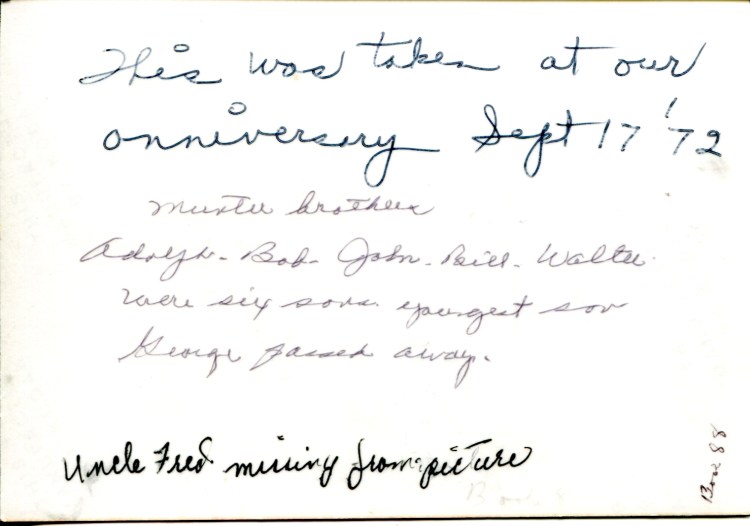 This was taken at our
anniversary Sept 17 '72
brothers
Adolph - Bob - John - Bill - Walter
were six sons youngest son
George passed away.
Uncle Fred missing from picture
Box 88